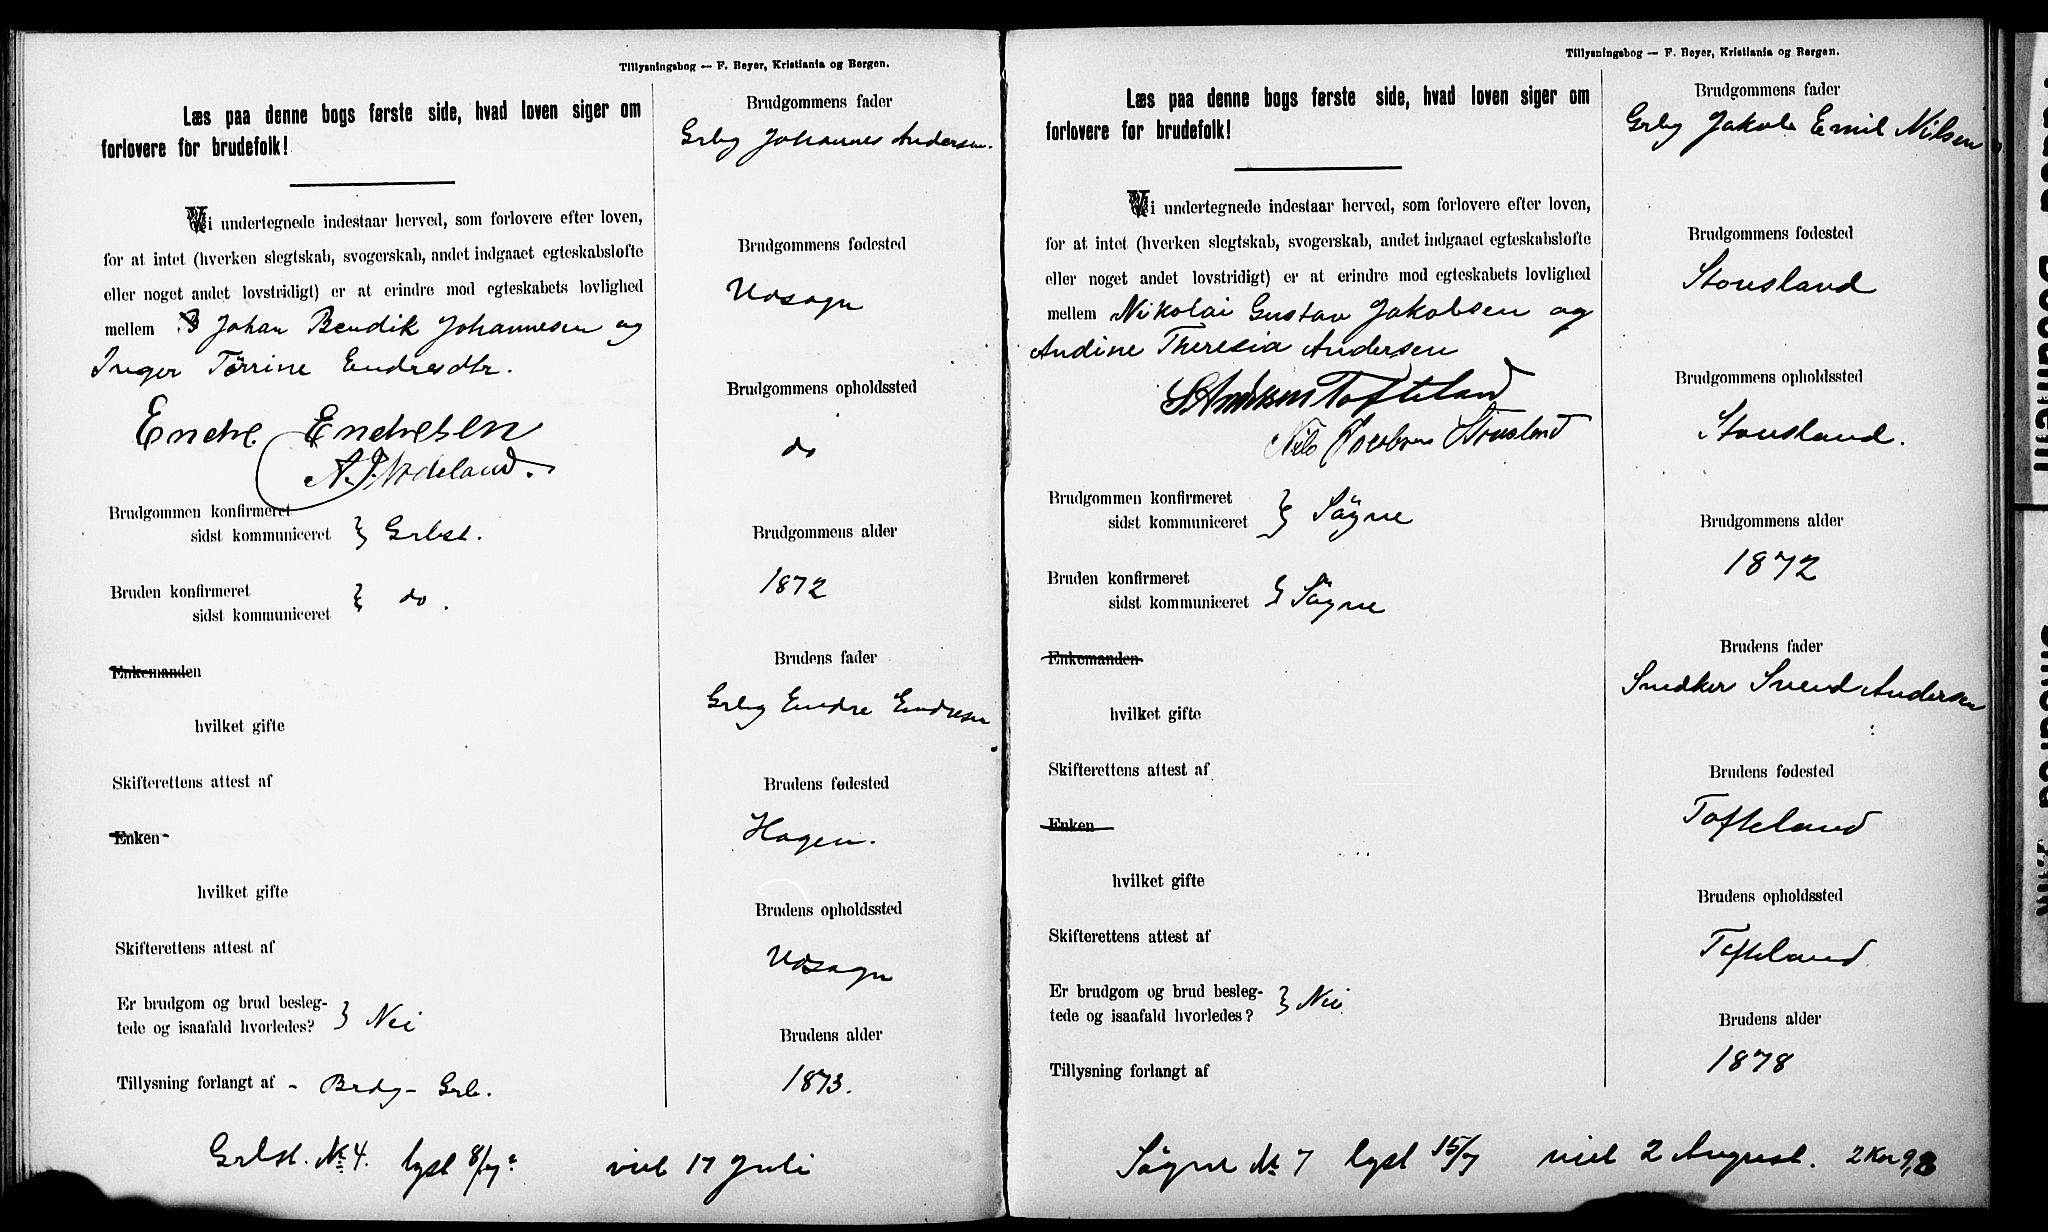 Tillysningsbog — F. Beyer, Kristiania og Bergen.
Læs paa denne bogs første side, hvad loven siger om
forlovere for brudefolk!
Vi undertegnede indestaar herved, som forlovere efter loven,
for at intet (hverken slegtskab, svogerskab, andet indgaaet egteskabsløfte
eller noget andet lovstridigt) er at erindre mod egteskabets lovlighed
mellem Johan Bendik Johannesen og
Inger Tørrine Endresdtr.
Endre Endresen
A. J. Nodeland.
Brudgommen konfirmeret
sidst kommuniceret } Grbst.
Bruden konfirmeret
sidst kommuniceret } do.
Enkemanden
hvilket gifte
Skifterettens attest af
Enken
hvilket gifte
Skifterettens attest af
Er brudgom og brud besleg-
tede og isaafald hvorledes? } Nei
Tillysning forlangt af - Brdg - Grb.
Brudgommens fader
Grbg Johannes Andersen.
Brudgommens fødested
Udsogn
Brudgommens opholdssted
do
Brudgommens alder
1872
Brudens fader
Grbg Endre Endresen
Brudens fødested
Hagen.
Brudens opholdssted
Udsogn
Brudens alder
1873.
Grbst. № 4. lyst 8/7 viet 17 Juli
Tillysningsbog — F. Beyer, Kristiania og Bergen.
Læs paa denne bogs første side, hvad loven siger om
forlovere for brudefolk!
Vi undertegnede indestaar herved, som forlovere efter loven,
for at intet (hverken slegtskab, svogerskab, andet indgaaet egteskabsløfte
eller noget andet lovstridigt) er at erindre mod egteskabets lovlighed
mellem Nikolai Gustav Jakobsen og
Andine Theresia Andersen
S Andersen Tofteland
Nils Jacobsen Stousland
Brudgommen konfirmeret
sidst kommuniceret } Søgne
Bruden konfirmeret
sidst kommuniceret } Søgne
Enkemanden
hvilket gifte
Skifterettens attest af
Enken
hvilket gifte
Skifterettens attest af
Er brudgom og brud besleg-
tede og isaafald hvorledes? } Nei
Tillysning forlangt af
Brudgommens fader
Grbg Jakob Emil Nilsen
Brudgommens fødested
Stousland
Brudgommens opholdssted
Stousland.
Brudgommens alder
1872
Brudens fader
Snedker Svend Andersen
Brudens fødested
Tofteland
Brudens opholdssted
Tofteland
Brudens alder
1878
Søgne № 7 lyst 15/7 viet 2 August.